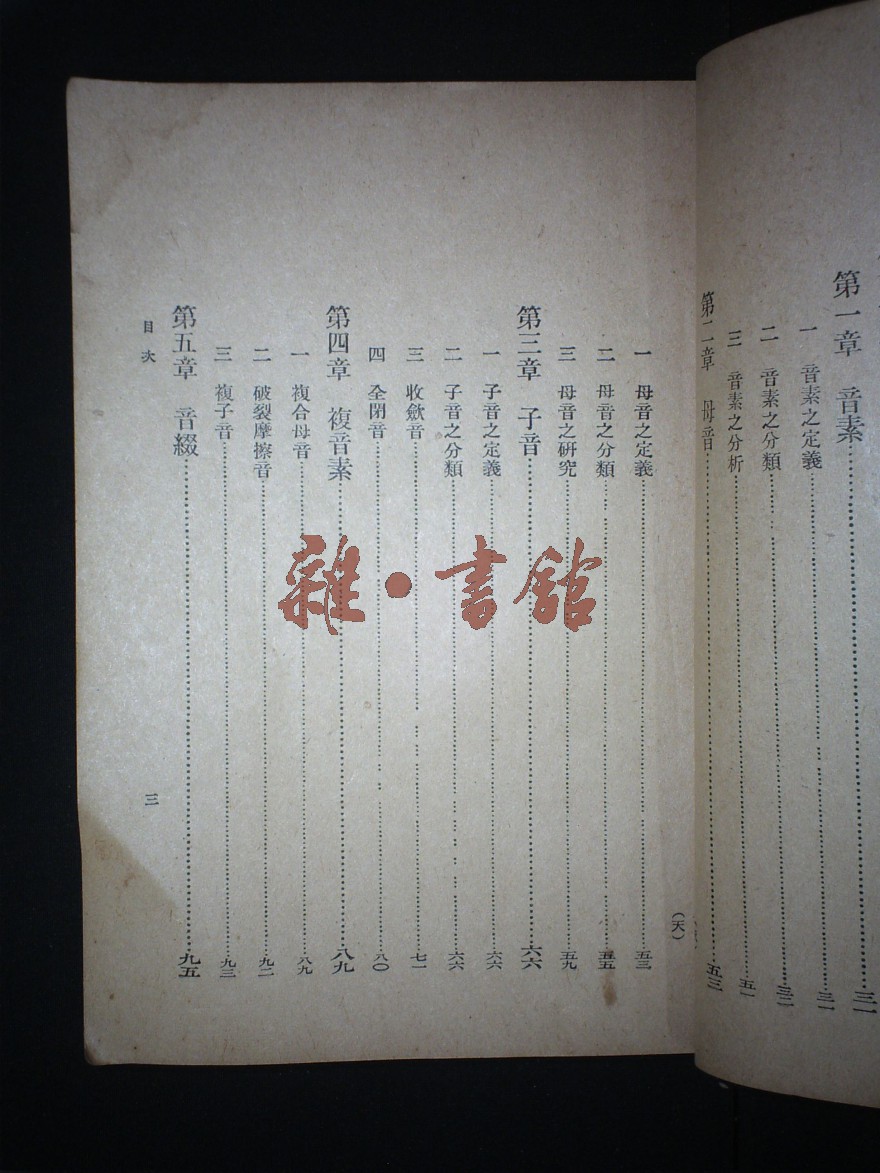 第一章　音素……三一
一　音素之定義……三一
二　音素之分類……三二
三　音素之分析……五一
第二章　母音……五三
(天)
一　母音之定義……五三
二　母音之分類……五五
三　母音之研究……五九
第三章　子音……六六
一　子音之定義……六六
二　子音之分類……六六
三　收歛音……七一
四　全閉音……八〇
第四章　複音素……八九
一　複合母音……八九
二　破裂摩擦音……九二
三　複子音……九三
第五章　音綴……九五
目次
三
雜·書館